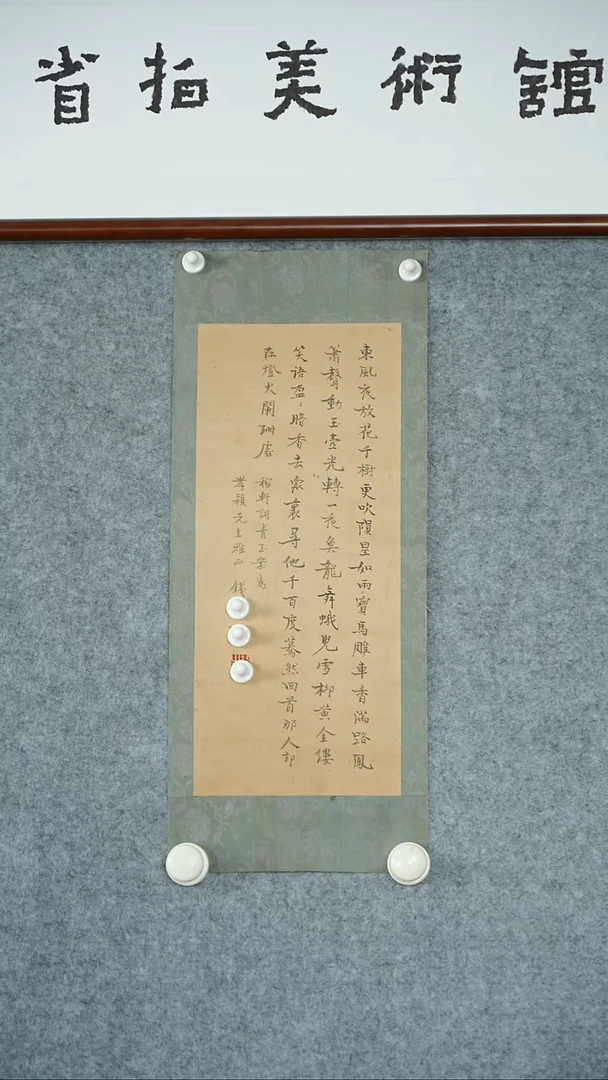 省拍美術館
東風夜放花千樹更吹隕星如雨寶馬雕車香滿路鳳
簫聲動玉壺光轉一夜魚龍舞蛾兒雪柳黃金縷
笑語盈〻暗香去衆裏尋他千百度驀然回首那人却
在燈火闌珊處
稼軒詞青玉案為
孝穎先生雅正 錢